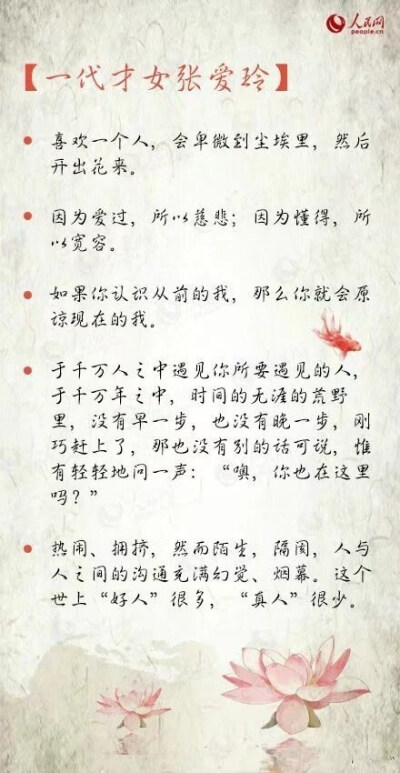 人民网
people.cn
【一代才女张爱玲】
• 喜欢一个人，会卑微到尘埃里，然后
开出花来。
• 因为爱过，所以慈悲；因为懂得，所
以宽容。
• 如果你认识从前的我，那么你就会原
谅现在的我。
• 于千万人之中遇见你所要遇见的人，
于千万年之中，时间的无涯的荒野
里，没有早一步，也没有晚一步，刚
巧赶上了，那也没有别的话可说，惟
有轻轻地问一声：“噢，你也在这里
吗？”
• 热闹、拥挤，然而陌生，隔阂，人与
人之间的沟通充满幻觉、烟幕。这个
世上“好人”很多，“真人”很少。